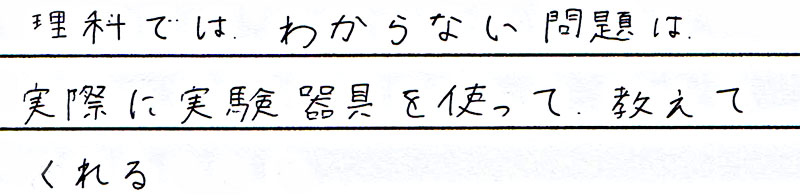 理科では、わからない問題は、
実際に実験器具を使って、教えて
くれる